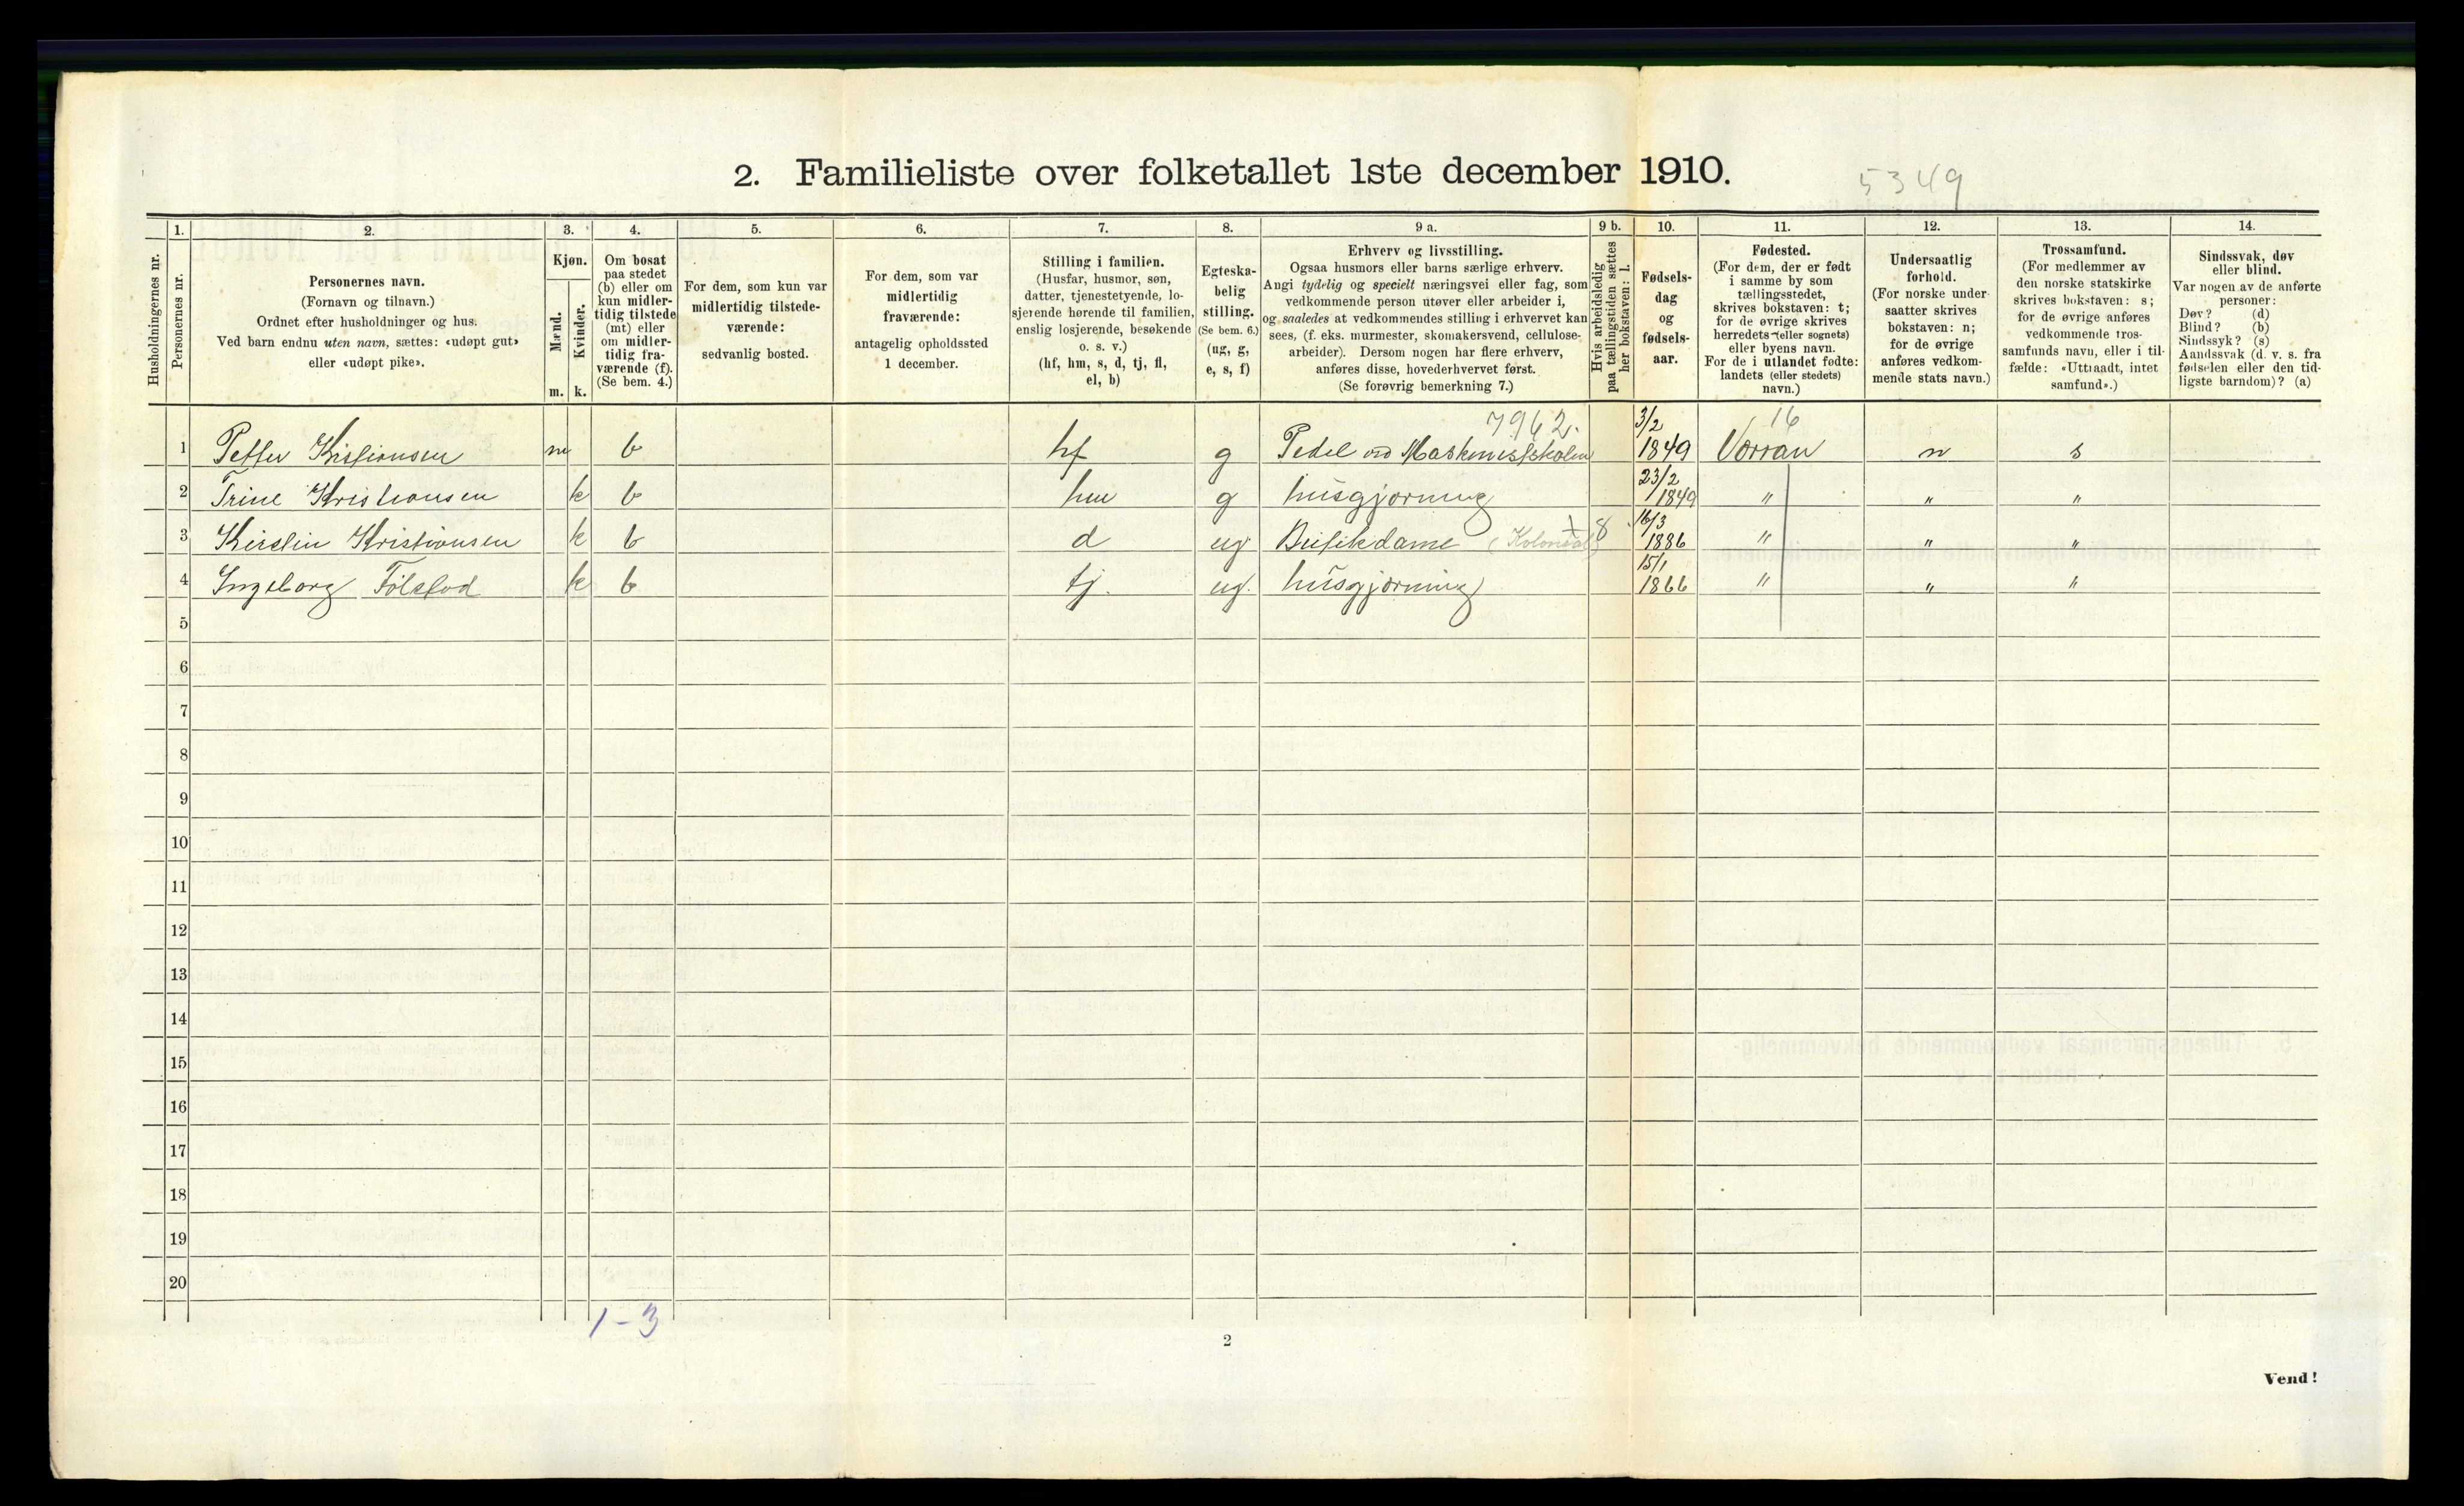 2. Familieliste over folketallet 1ste december 1910.
5349
Husholdningernes nr.
1. Personernes nr.
2. Personernes navn.
(Fornavn og tilnavn.)
Ordnet efter husholdninger og hus.
Ved barn endnu uten navn, sættes: «udøpt gut»
eller «udøpt pike».
3. Kjøn.
Mænd. m.
Kvinder. k.
4. Om bosat
paa stedet
(b) eller om
kun midler-
tidig tilstede
(mt) eller
om midler-
tidig fra-
værende (f).
(Se bem. 4.)
5. For dem, som kun var
midlertidig tilstede-
værende:
sedvanlig bosted.
6. For dem, som var
midlertidig
fraværende:
antagelig opholdssted
1 december.
7. Stilling i familien.
(Husfar, husmor, søn,
datter, tjenestetyende, lo-
sjerende hørende til familien,
enslig losjerende, besøkende
o. s. v.)
(hf, hm, s, d, tj, fl,
el, b)
8. Egteska-
belig
stilling.
(Se bem. 6.)
(ug, g,
e, s, f)
9 a. Erhverv og livsstilling.
Ogsaa husmors eller barns særlige erhverv.
Angi tydelig og specielt næringsvei eller fag, som
vedkommende person utøver eller arbeider i,
og saaledes at vedkommendes stilling i erhvervet kan
sees, (f. eks. murmester, skomakersvend, cellulose-
arbeider). Dersom nogen har flere erhverv,
anføres disse, hovederhvervet først.
(Se forøvrig bemerkning 7.)
9 b. Hvis arbeidsledig
paa tællingstiden sættes
her bokstaven: l.
10. Fødsels-
dag
og
fødsels-
aar.
11. Fødested.
(For dem, der er født
i samme by som
tællingsstedet,
skrives bokstaven: t;
for de øvrige skrives
herredets (eller sognets)
eller byens navn.
For de i utlandet fødte:
landets (eller stedets)
navn.)
12. Undersaatlig
forhold.
(For norske under-
saatter skrives
bokstaven: n;
for de øvrige
anføres vedkom-
mende stats navn.)
13. Trossamfund.
(For medlemmer av
den norske statskirke
skrives bokstaven: s;
for de øvrige anføres
vedkommende tros-
samfunds navn, eller i til-
fælde: «Uttraadt, intet
samfund».)
14. Sindssvak, døv
eller blind.
Var nogen av de anførte
personer:
Døv? (d)
Blind? (b)
Sindssyk? (s)
Aandssvak (d. v. s. fra
fødselen eller den tid-
ligste barndom)? (a)
7962. 16
1 Petter Kristiansen m b hf g Pedel ved Maskinistskolen 3/2 1849 Værran n s
2 Trine Kristiansen k b hm g husgjørning 23/2 1849 " " "
3 Kirstin Kristiansen k b d ug Butikdame (Kolonial) 8 16/3 1886 " " "
4 Ingeborg k b tj. ug. husgjørning 15/1 1866 " " "
5
6
7
8
9
10
11
12
13
14
15
16
17
18
19
20
1-3
2
Vend!